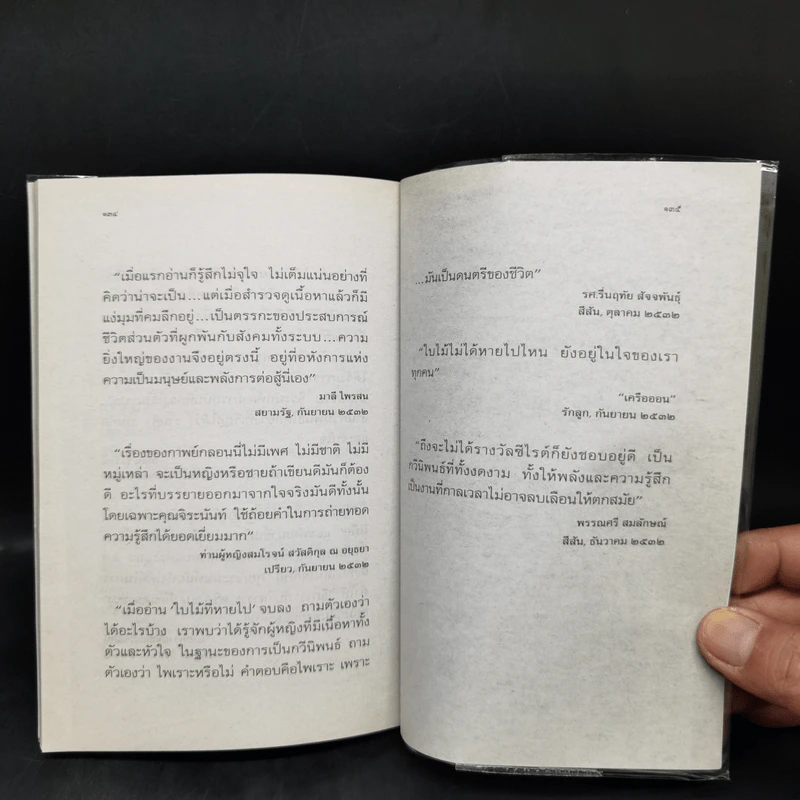 ๑๓๔
“เมื่อแรกอ่านก็รู้สึกไม่จุใจ ไม่เต็มแน่นอย่างที่
คิดว่าน่าจะเป็น...แต่เมื่อสำรวจดูเนื้อหาแล้วก็มี
แง่มุมที่คมลึกอยู่...เป็นตรรกะของประสบการณ์
ชีวิตส่วนตัวที่ผูกพันกับสังคมทั้งระบบ...ความ
ยิ่งใหญ่ของงานจึงอยู่ตรงนี้ อยู่ที่อหังการแห่ง
ความเป็นมนุษย์และพลังการต่อสู้นี่เอง”
มาลี ไพรสน
สยามรัฐ, กันยายน ๒๕๓๒
“เรื่องของกาพย์กลอนนี่ไม่มีเพศ ไม่มีชาติ ไม่มี
หมู่เหล่า จะเป็นหญิงหรือชายถ้าเขียนดีมันก็ต้อง
ดี อะไรที่บรรยายออกมาจากใจจริงมันดีทั้งนั้น
โดยเฉพาะคุณจิระนันท์ ใช้ถ้อยคำในการถ่ายทอด
ความรู้สึกได้ยอดเยี่ยมมาก”
ท่านผู้หญิงสมโรจน์ สวัสดิกุล ณ อยุธยา
เปรียว, กันยายน ๒๕๓๒
“เมื่ออ่าน ‘ใบไม้ที่หายไป’ จบลง ถามตัวเองว่า
ได้อะไรบ้าง เราพบว่าได้รู้จักผู้หญิงที่มีเนื้อหาทั้ง
ตัวและหัวใจ ในฐานะของการเป็นกวีนิพนธ์ ถาม
ตัวเองว่า ไพเราะหรือไม่ คำตอบคือไพเราะ เพราะ
๑๓๕
...มันเป็นดนตรีของชีวิต”
รศ.รื่นฤทัย สัจจพันธุ์
สีสัน, ตุลาคม ๒๕๓๒
“ใบไม้ไม่ได้หายไปไหน ยังอยู่ในใจของเรา
ทุกคน”
“เครือออน”
รักลูก, กันยายน ๒๕๓๒
“ถึงจะไม่ได้รางวัลซีไรต์ก็ยังชอบอยู่ดี เป็น
กวีนิพนธ์ที่ทั้งงดงาม ทั้งให้พลังและความรู้สึก
เป็นงานที่กาลเวลาไม่อาจลบเลือนให้ตกสมัย”
พรรณศรี สมลักษณ์
สีสัน, ธันวาคม ๒๕๓๒